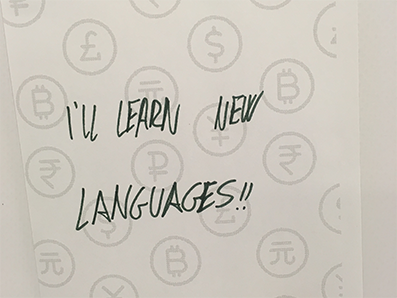 I'll LEARN NEW
LANGUAGES!!